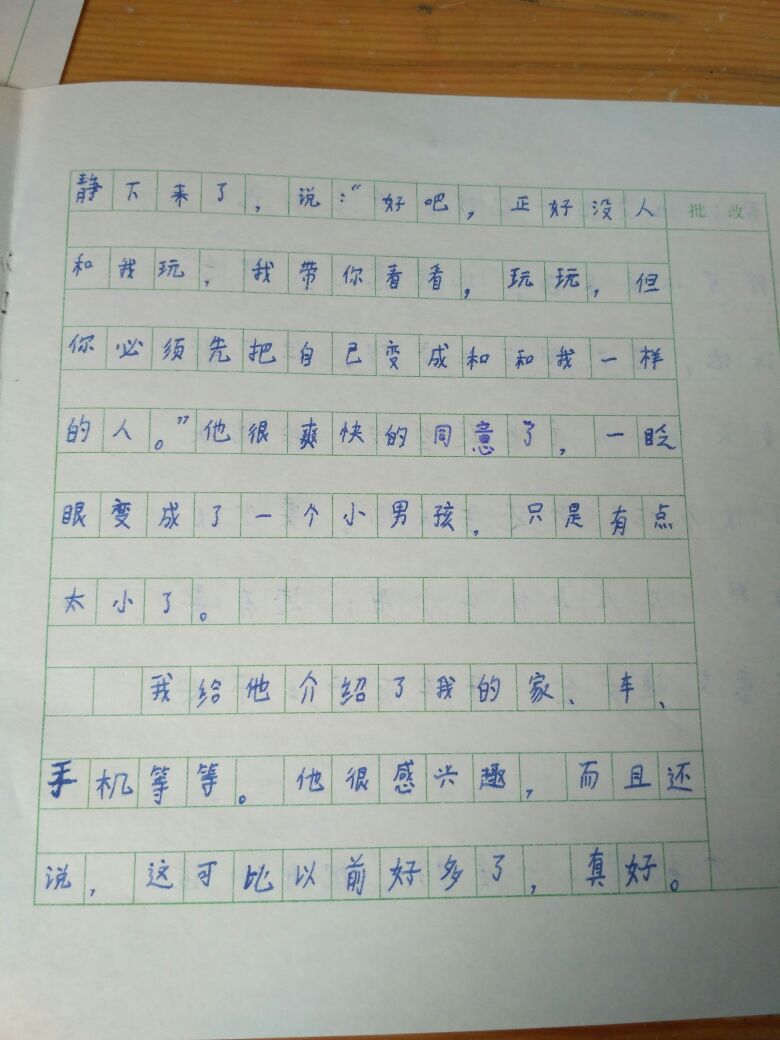 静下来了，说：“好吧，正好没人
批改
和我玩，我带你看看，玩玩，但
你必须先把自己变成和和我一样
的人。”他很爽快的同意了，一眨
眼变成了一个小男孩，只是有点
太小了。
我给他介绍了我的家、车、
手机等等。他很感兴趣，而且还
说，这可比以前好多了，真好。